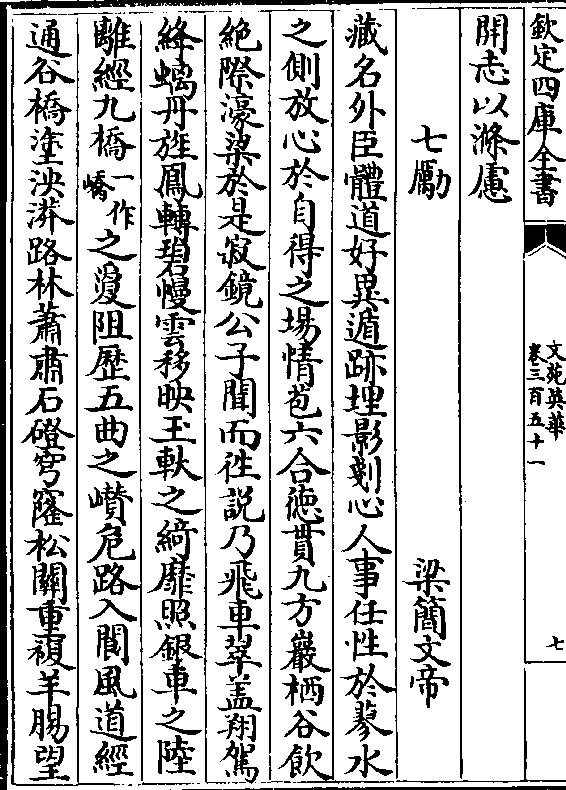 欽定四庫全書
文苑英華
卷三百五十一
七
開志以滌慮
七勵
梁簡文帝
藏名外臣體道好異遁跡埋影剗心人事任性於蓼水
之側放心於自得之場情苞六合德貫九方巖栖谷飲
絶際濠梁於是寂鏡公子聞而徃説乃飛車翠盖翔駕
絳螭丹旌鳳轉碧幔雲移映玉軑之綺靡照銀車之陸
離經九橋一作嶠之𡕰阻歴五曲之巑危路入閬風道經
通谷橋塗泱漭路林蕭肅石磴穹窿松關重複羊腸望